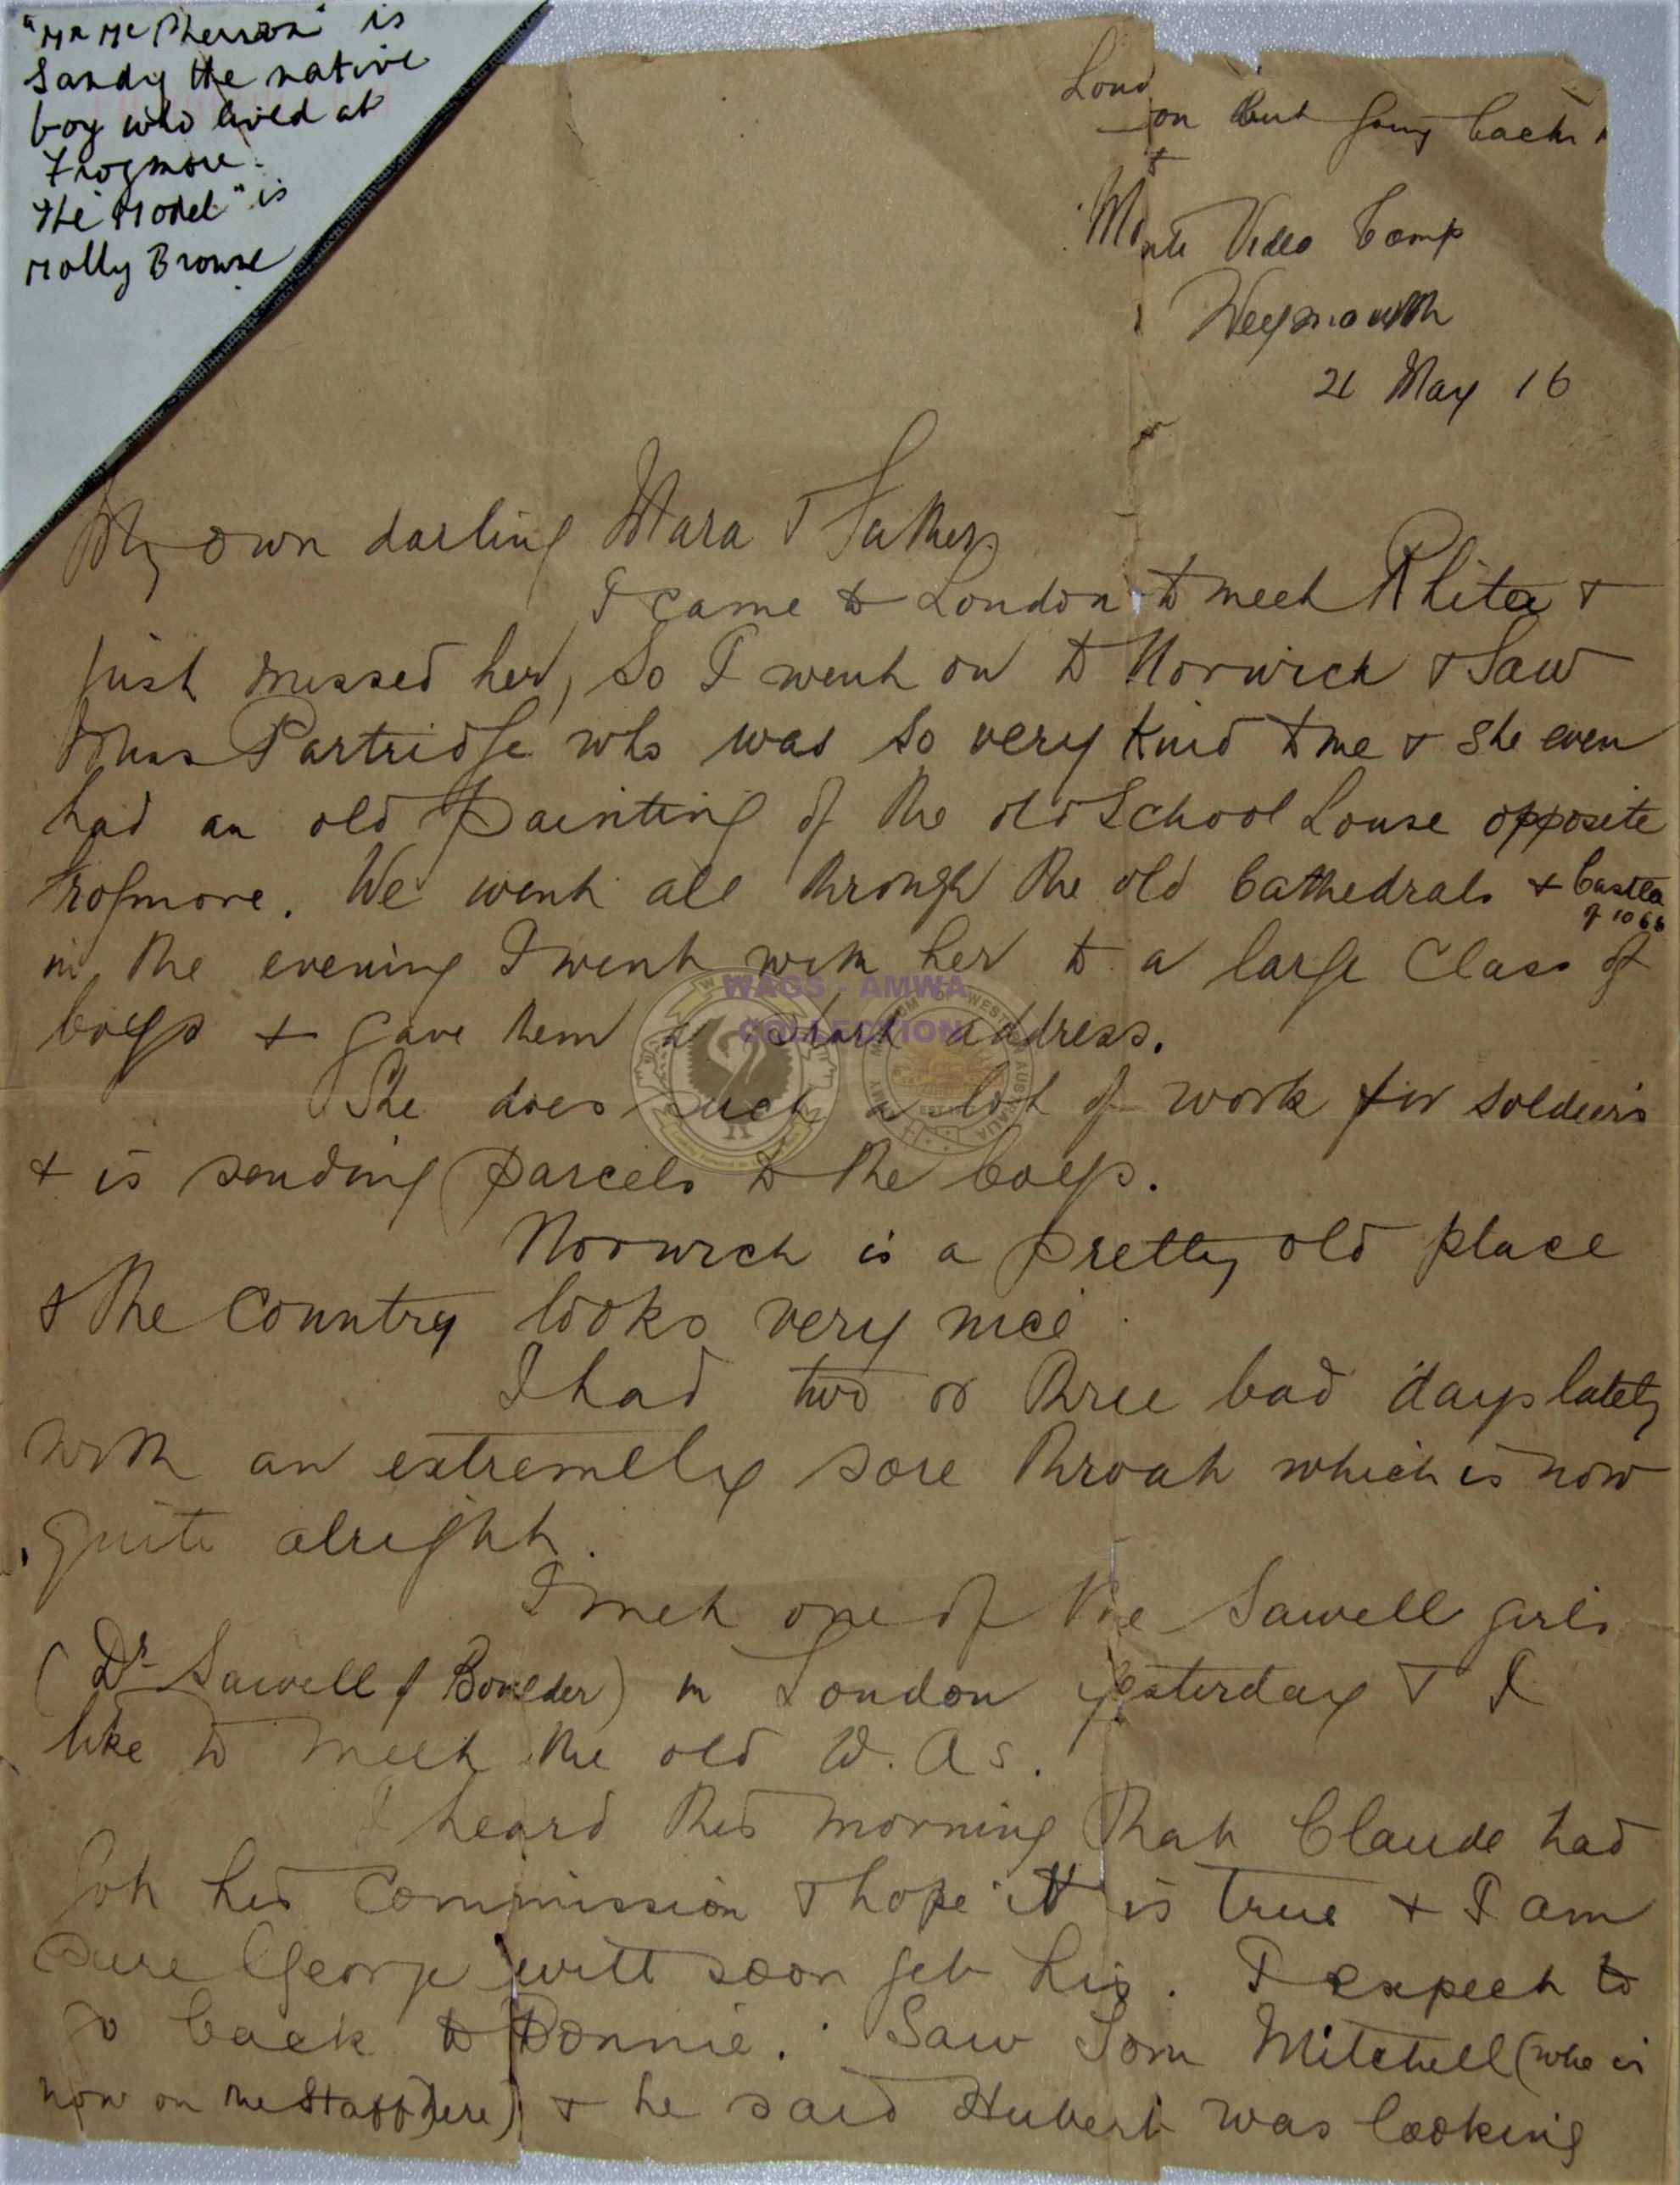 "Mr McPherson" is
Sandy the native
boy who lived at
Frogmore.
"The Model" is
Molly Browne
London but going back
to
Monte Video Camp
Weymouth
21 May 16
My own darling Mara & Father
I came to London to meet Rhita &
just missed her, so I went on to Norwich & saw
Miss Partridge who was so very kind to me & she even
had an old painting of the old School House opposite
Frogmore. We went all through the old Cathedrals & Castle
of 1066
in the evening I went with her to a large Class of
boys & gave them a short address.
She does such a lot of work for soldiers
& is sending parcels to the boys.
Norwich is a pretty old place
& the Country looks very nice
I had two or three bad days lately
with an extremely sore throat which is now
quite alright.
I met one of the Sawell girls
(Dr Sawell of Boulder) in London yesterday & I
like to meet the old W. As.
I heard this morning that Claude had
got his Commission & hope it is true & I am
sure George will soon get his. I expect to
go back to Bonnie. Saw Tom Mitchell (who is
now on the Staff here) & he said Hubert was looking
WAGS - AMWA
COLLECTION